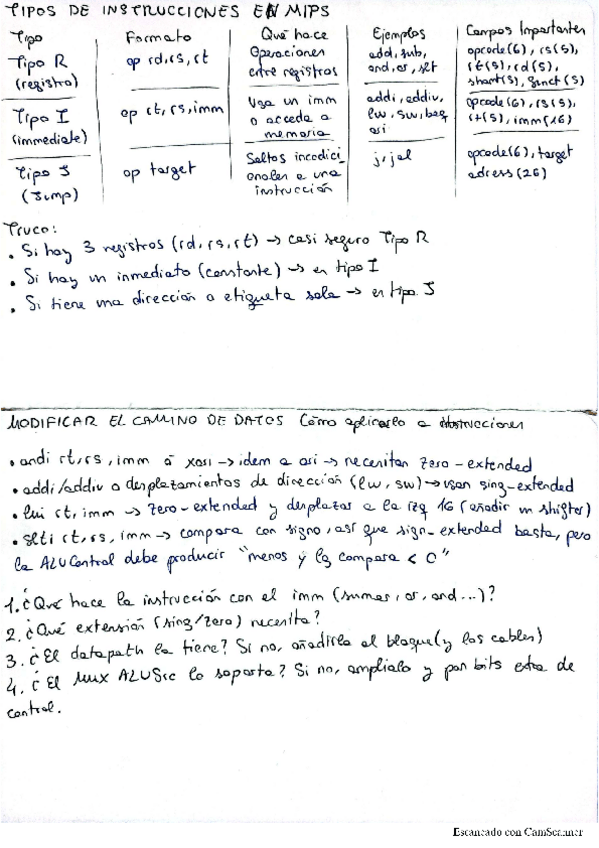 TIPOS DE INSTRUCCIONES EN MIPS
Tipo Formato Qué hace Ejemplos Campos Importantes
Tipo R (registro) op rd,rs,rt Operaciones entre registros add, sub, and, or, slt opcode(6), rs(5), rt(5), rd(5), shamt(5), funct(5)
Tipo I (immediate) op rt,rs,imm Usa un imm o acceda a memoria addi, addiu, lw, sw, beq, ori opcode(6), rs(5), rt(5), imm(16)
Tipo J (Jump) op target Saltos incodicionales a una instrucción j, jal opcode(6), target adress(26)
Truco:
• Si hay 3 registros (rd,rs,rt) → casi seguro Tipo R
• Si hay un inmediato (constante) → es tipo I
• Si tiene una dirección o etiqueta sola → es tipo J
MODIFICAR EL CAMINO DE DATOS Cómo aplicarlo a instrucciones
• andi rt,rs,imm ó xori → idem a ori → necesitan zero-extended
• addi/addiu o desplazamientos de dirección (lw, sw) → usan sing-extended
• lui rt, imm → zero-extended y desplazar a la izq 16 (añadir un shifter)
• slti rt,rs,imm → compara con signo, así que sign-extended basta, pero
la ALUControl debe producir "menos y lq compara < 0"
1. ¿Qué hace la instrucción con el imm (sumar, or, and...)?
2. ¿Qué extensión (sing/zero) necesita?
3. ¿El datapath la tiene? Si no, añadirla al bloque (y los cables)
4. ¿El Mux ALUSrc lo soporta? Si no, amplialo y pon bits extra de
control.
Escaneado con CamScanner